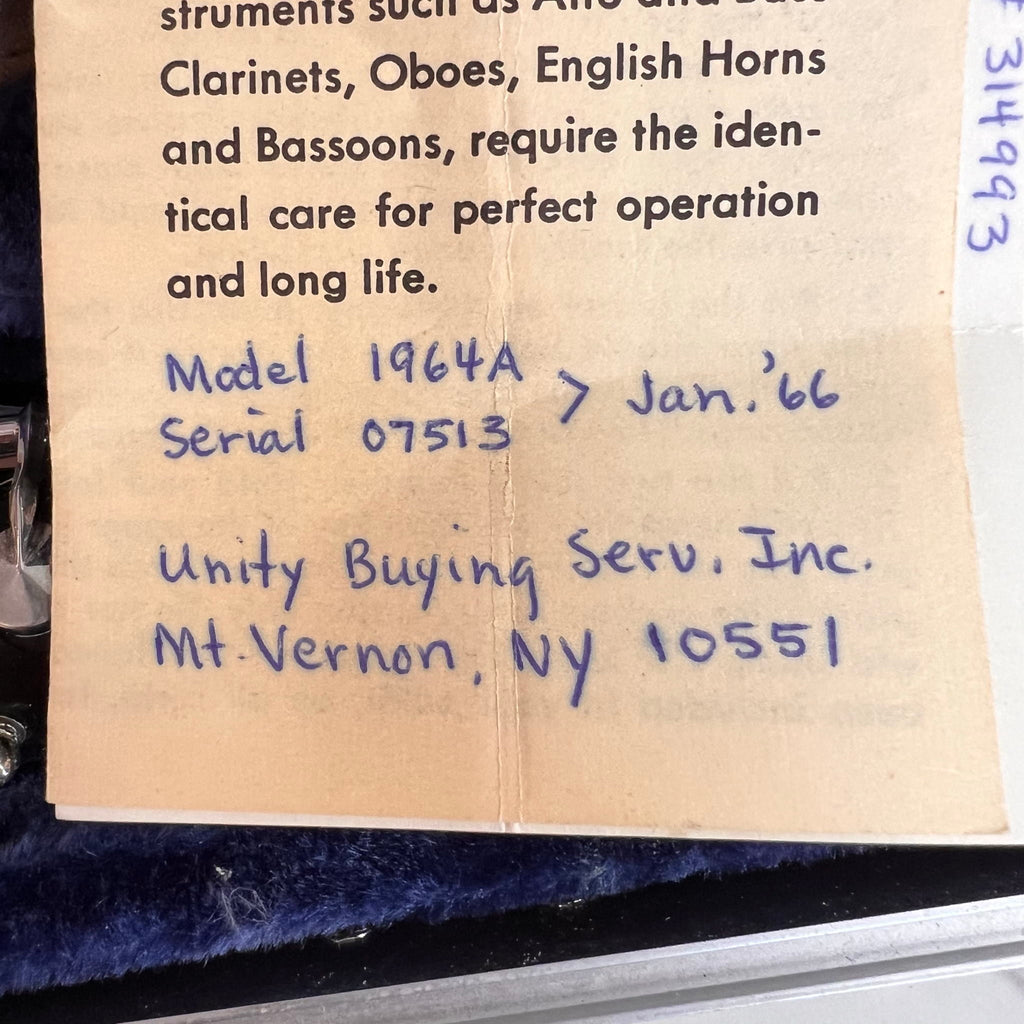 struments such as Alto and Bass
Clarinets, Oboes, English Horns
and Bassoons, require the iden-
tical care for perfect operation
and long life.
Model 1964A > Jan. '66
Serial 07513
Unity Buying Serv. Inc.
Mt. Vernon, NY 10551
# 314993